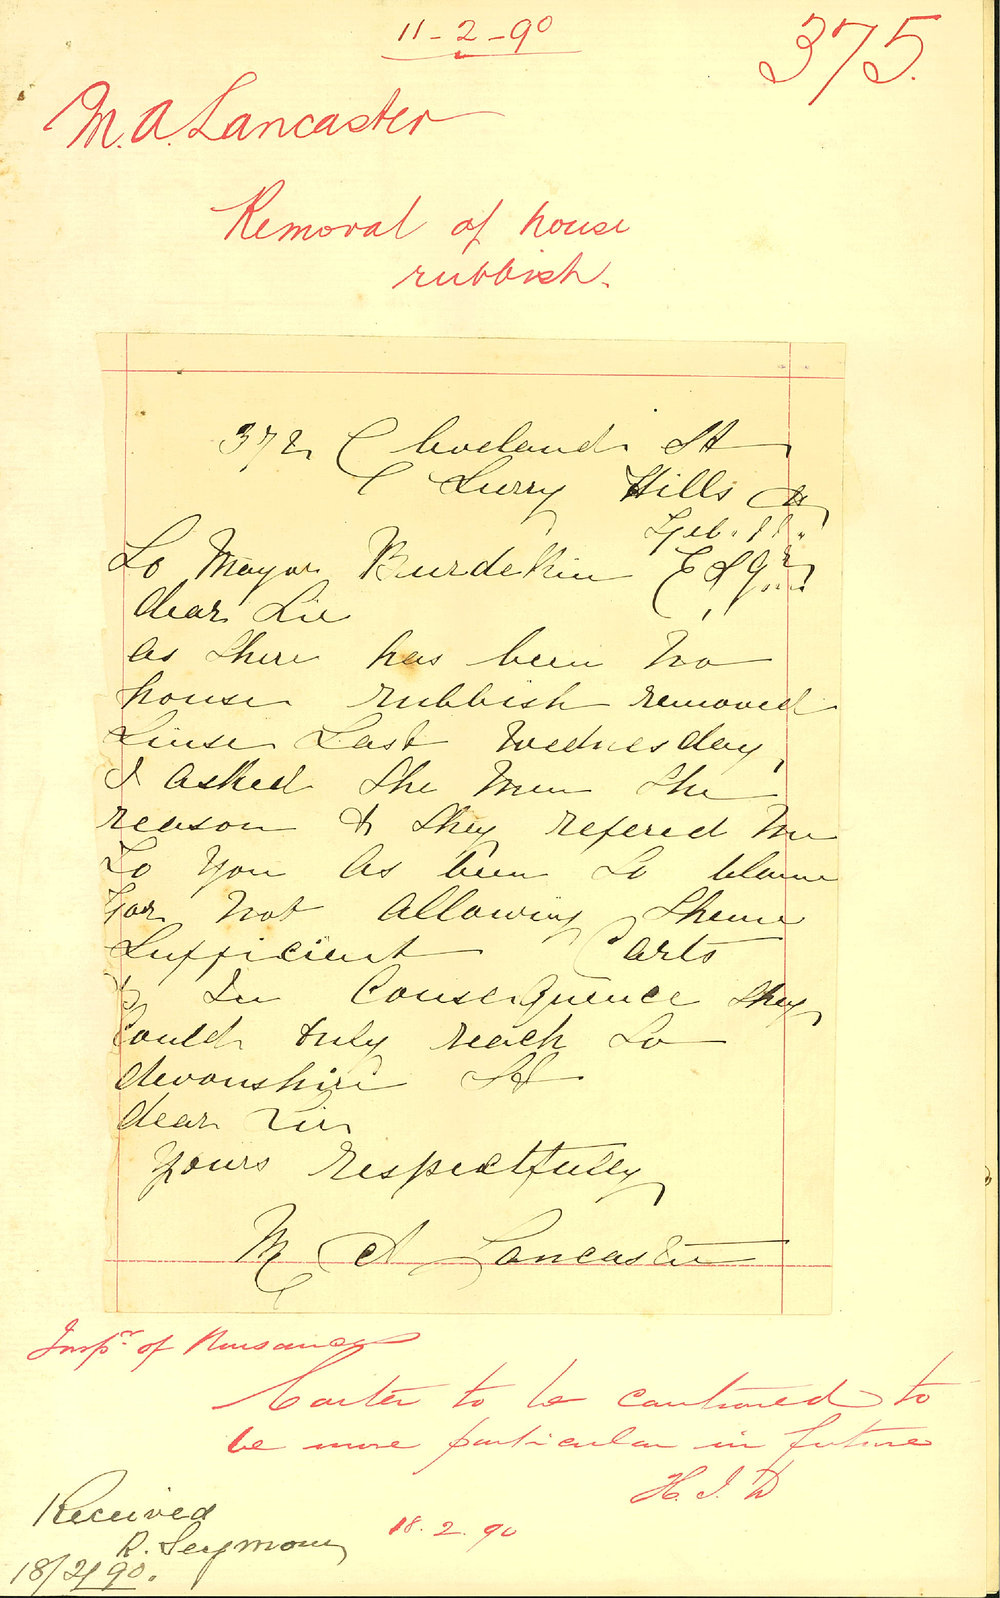 11-2-90
375.
M. A. Lancaster
Removal of house
rubbish.
372 Cleveland St
Surry Hills
Feb. 11.
To Mayor Burdekin Esqr
dear Sir
as there has been no
house rubbish removed
Sinse Last Wednesday,
I asked the men the
reason & they refered me
To you As been to blame
For not Allowing theme
Sufficient Carts
& In Consequence they
Could only reach to
devonshire St
dear Sir
yours respectfully
M A Lancaster
Inspr. of Nuisances
Carter to be cautioned to
be more particular in future
H. J. D
18.2.90
Received
R. Seymour
18/2/90.